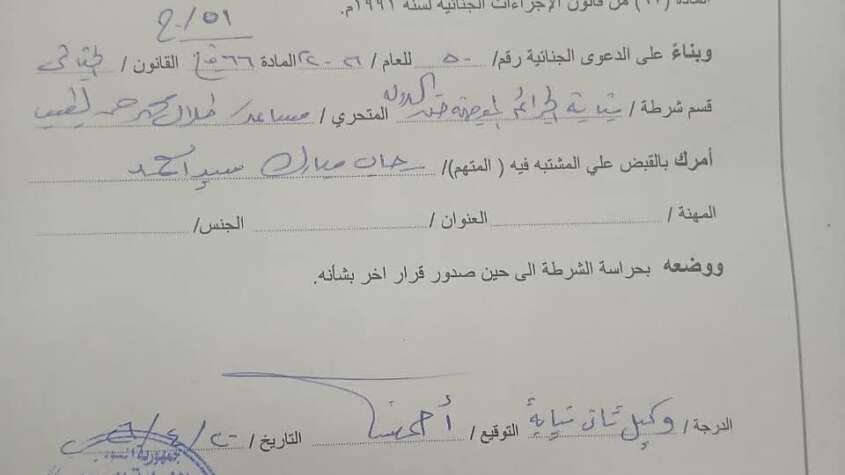 المادة ( ) من قانون الإجراءات الجنائية لسنة ١٩٩١م.
٥١/ح
وبناءً على الدعوى الجنائية رقم/ ٥٠ للعام / ٢٠٢٦ المادة ٦٦ القانون / الجنائي
قسم شرطة / نيابة الجرائم الموجهة ضد الدولة المتحري / مساعد/ طلال الطيب
أمرك بالقبض علي المشتبه فيه ( المتهم)/ رحاب مبارك سيد أحمد
المهنة / العنوان / الجنس/
ووضعه بحراسة الشرطة الى حين صدور قرار اخر بشأنه.
الدرجة / وكيل ثاني نيابة التوقيع / التاريخ /
جمهورية السودان